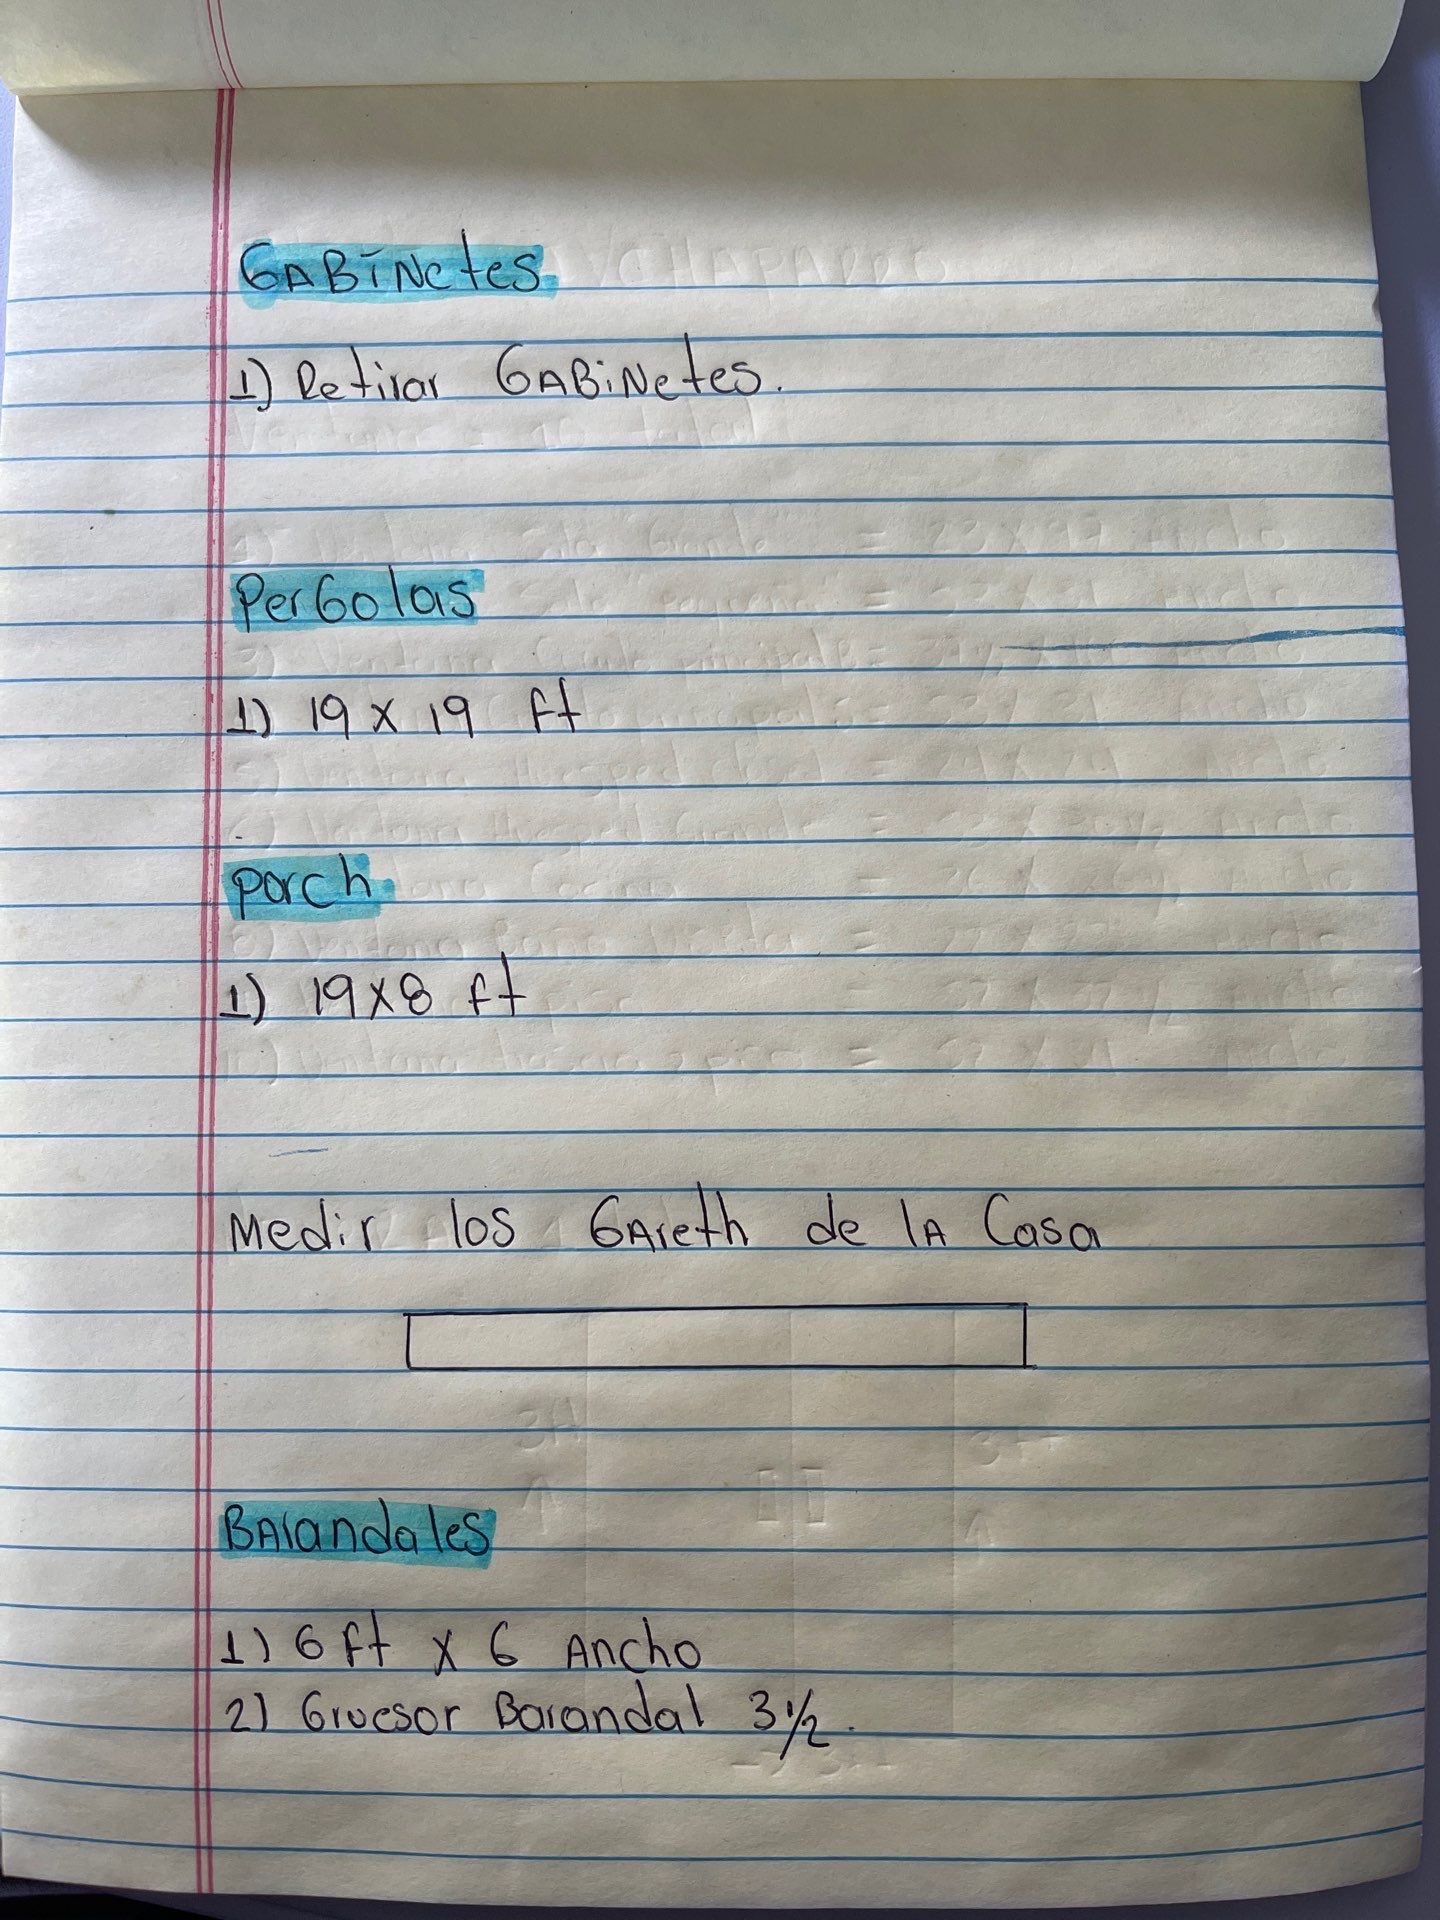 GABiNetes.
1) Retirar GABiNetes.
PerGolas
1) 19 x 19 ft
porch.
1) 19x8 ft
Medir los GAreth de lA Casa
BArandales
1) 6 ft x 6 Ancho
2) Gruesor Barandal 3 1/2.